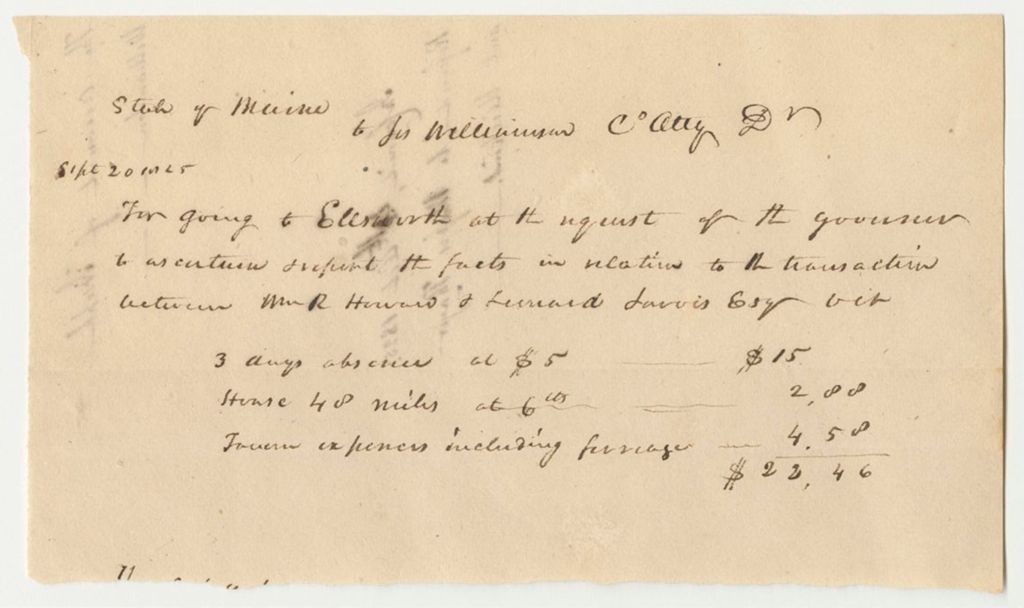 State of Maine
to Jos Williamson Co Atty Dr
Sept 20 1825
For going to Ellsworth at the request of the governor
to ascertain & report the facts in relation to the transaction
between Wm R Howard & Leonard Jarvis Esqr
3 days absence at $5 $15
Horse 48 miles at 6 cts 2,88
Tavern expences including ferriage 4.58
$22,46